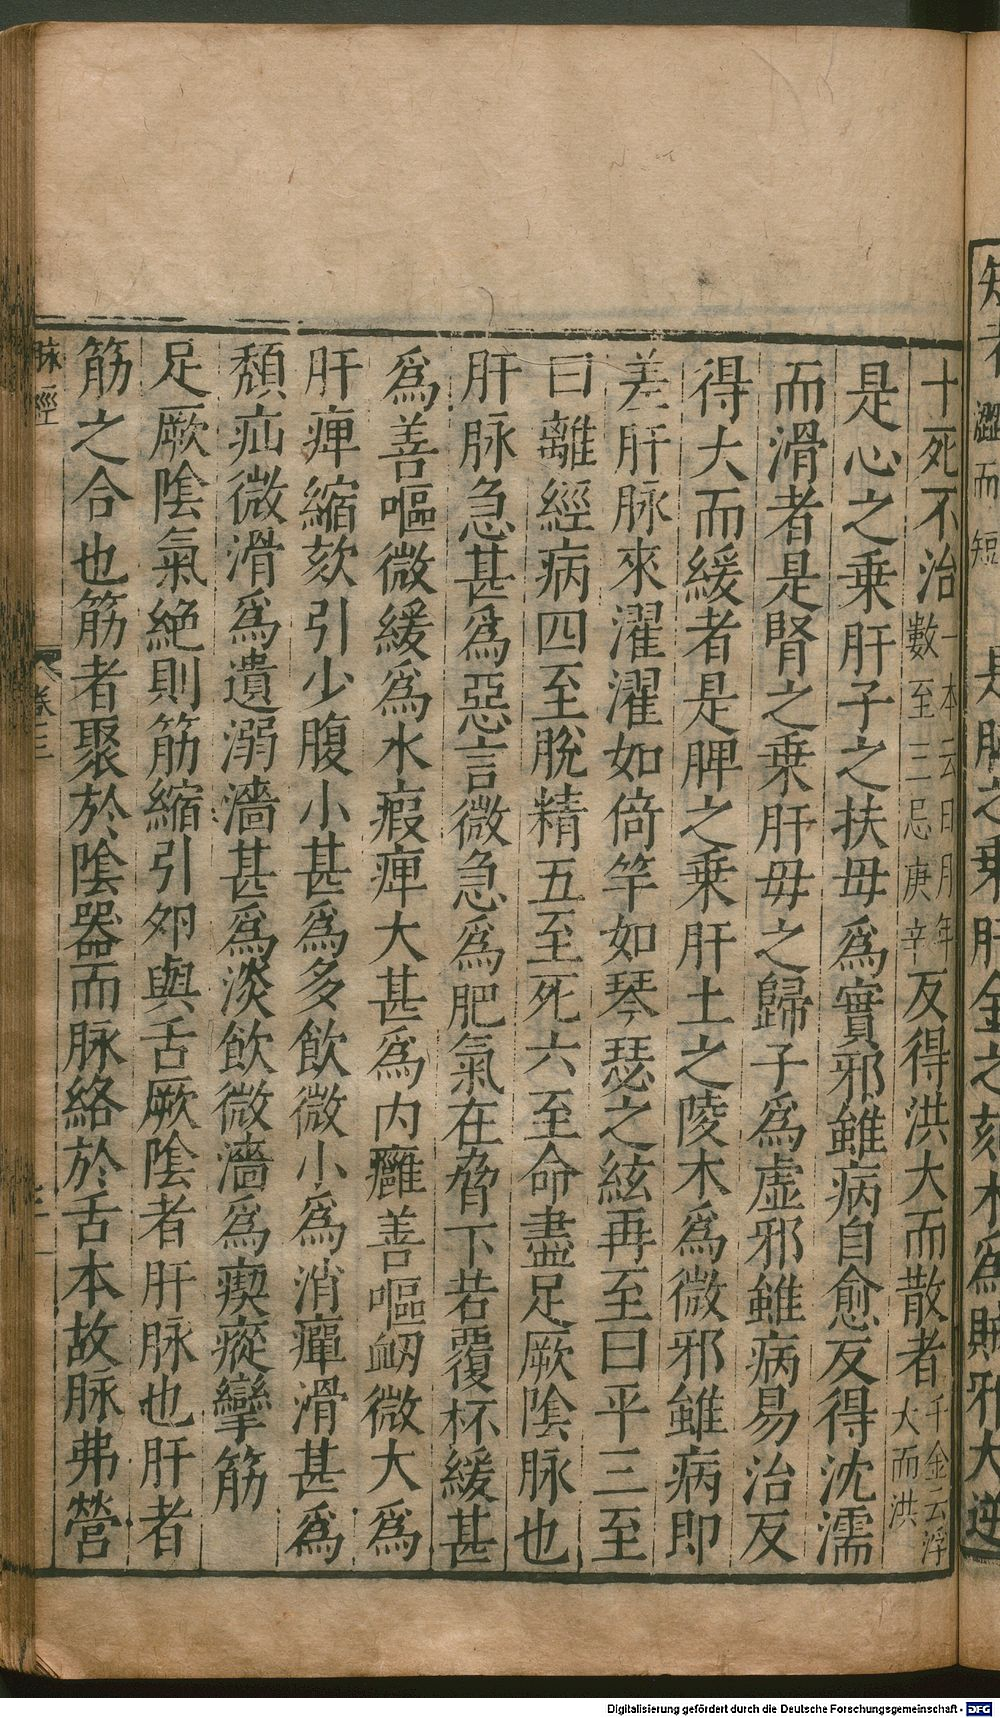 知者澀而短
是肺之乗肝金之刻木爲賊邪大逆
十死不治一本云日月年數至三忌庚辛反得洪大而散者千金云浮大而洪
是心之乗肝子之扶毋爲實邪雖病自愈反得沈濡
而滑者是腎之乗肝毋之歸子爲虛邪雖病易治反
得大而緩者是脾之乗肝土之陵木爲微邪雖病即
差肝脉來濯濯如倍竿如琴瑟之絃再至曰平三至
曰離經病四至脫精五至死六至命盡足厥隂脉也
肝脉急甚爲惡言微急爲肥氣在脅下若覆杯緩甚
爲善嘔微緩爲水瘕痺大甚爲内癰善嘔衂微大爲
肝痺縮欬引少腹小甚爲多飲微小爲消癉滑甚爲
㿗疝微滑爲遺溺濇甚爲淡飲微濇爲瘈瘲攣筋
足厥隂氣絶則筋縮引夘與舌厥隂者肝脉也肝者
筋之合也筋者聚於隂器而脉絡於舌本故脉弗營
脉經
卷三
Digitalisierung gefördert durch die Deutsche Forschungsgemeinschaft - DFG